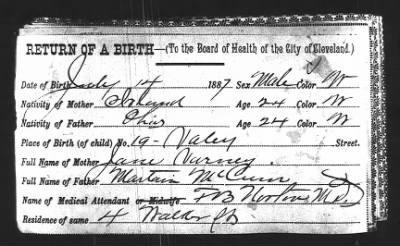 RETURN OF A BIRTH—(To the Board of Health of the City of Cleveland.)
Date of Birth July 14 1887 Sex Male Color W
Nativity of Mother Ireland Age 24 Color W
Nativity of Father Ohio Age 24 Color W
Place of Birth (of child) No. 19 - Valey Street.
Full Name of Mother Jane Varney
Full Name of Father Martain
Name of Medical Attendant or Midwife FB M.D.
Residence of same 4 Walker